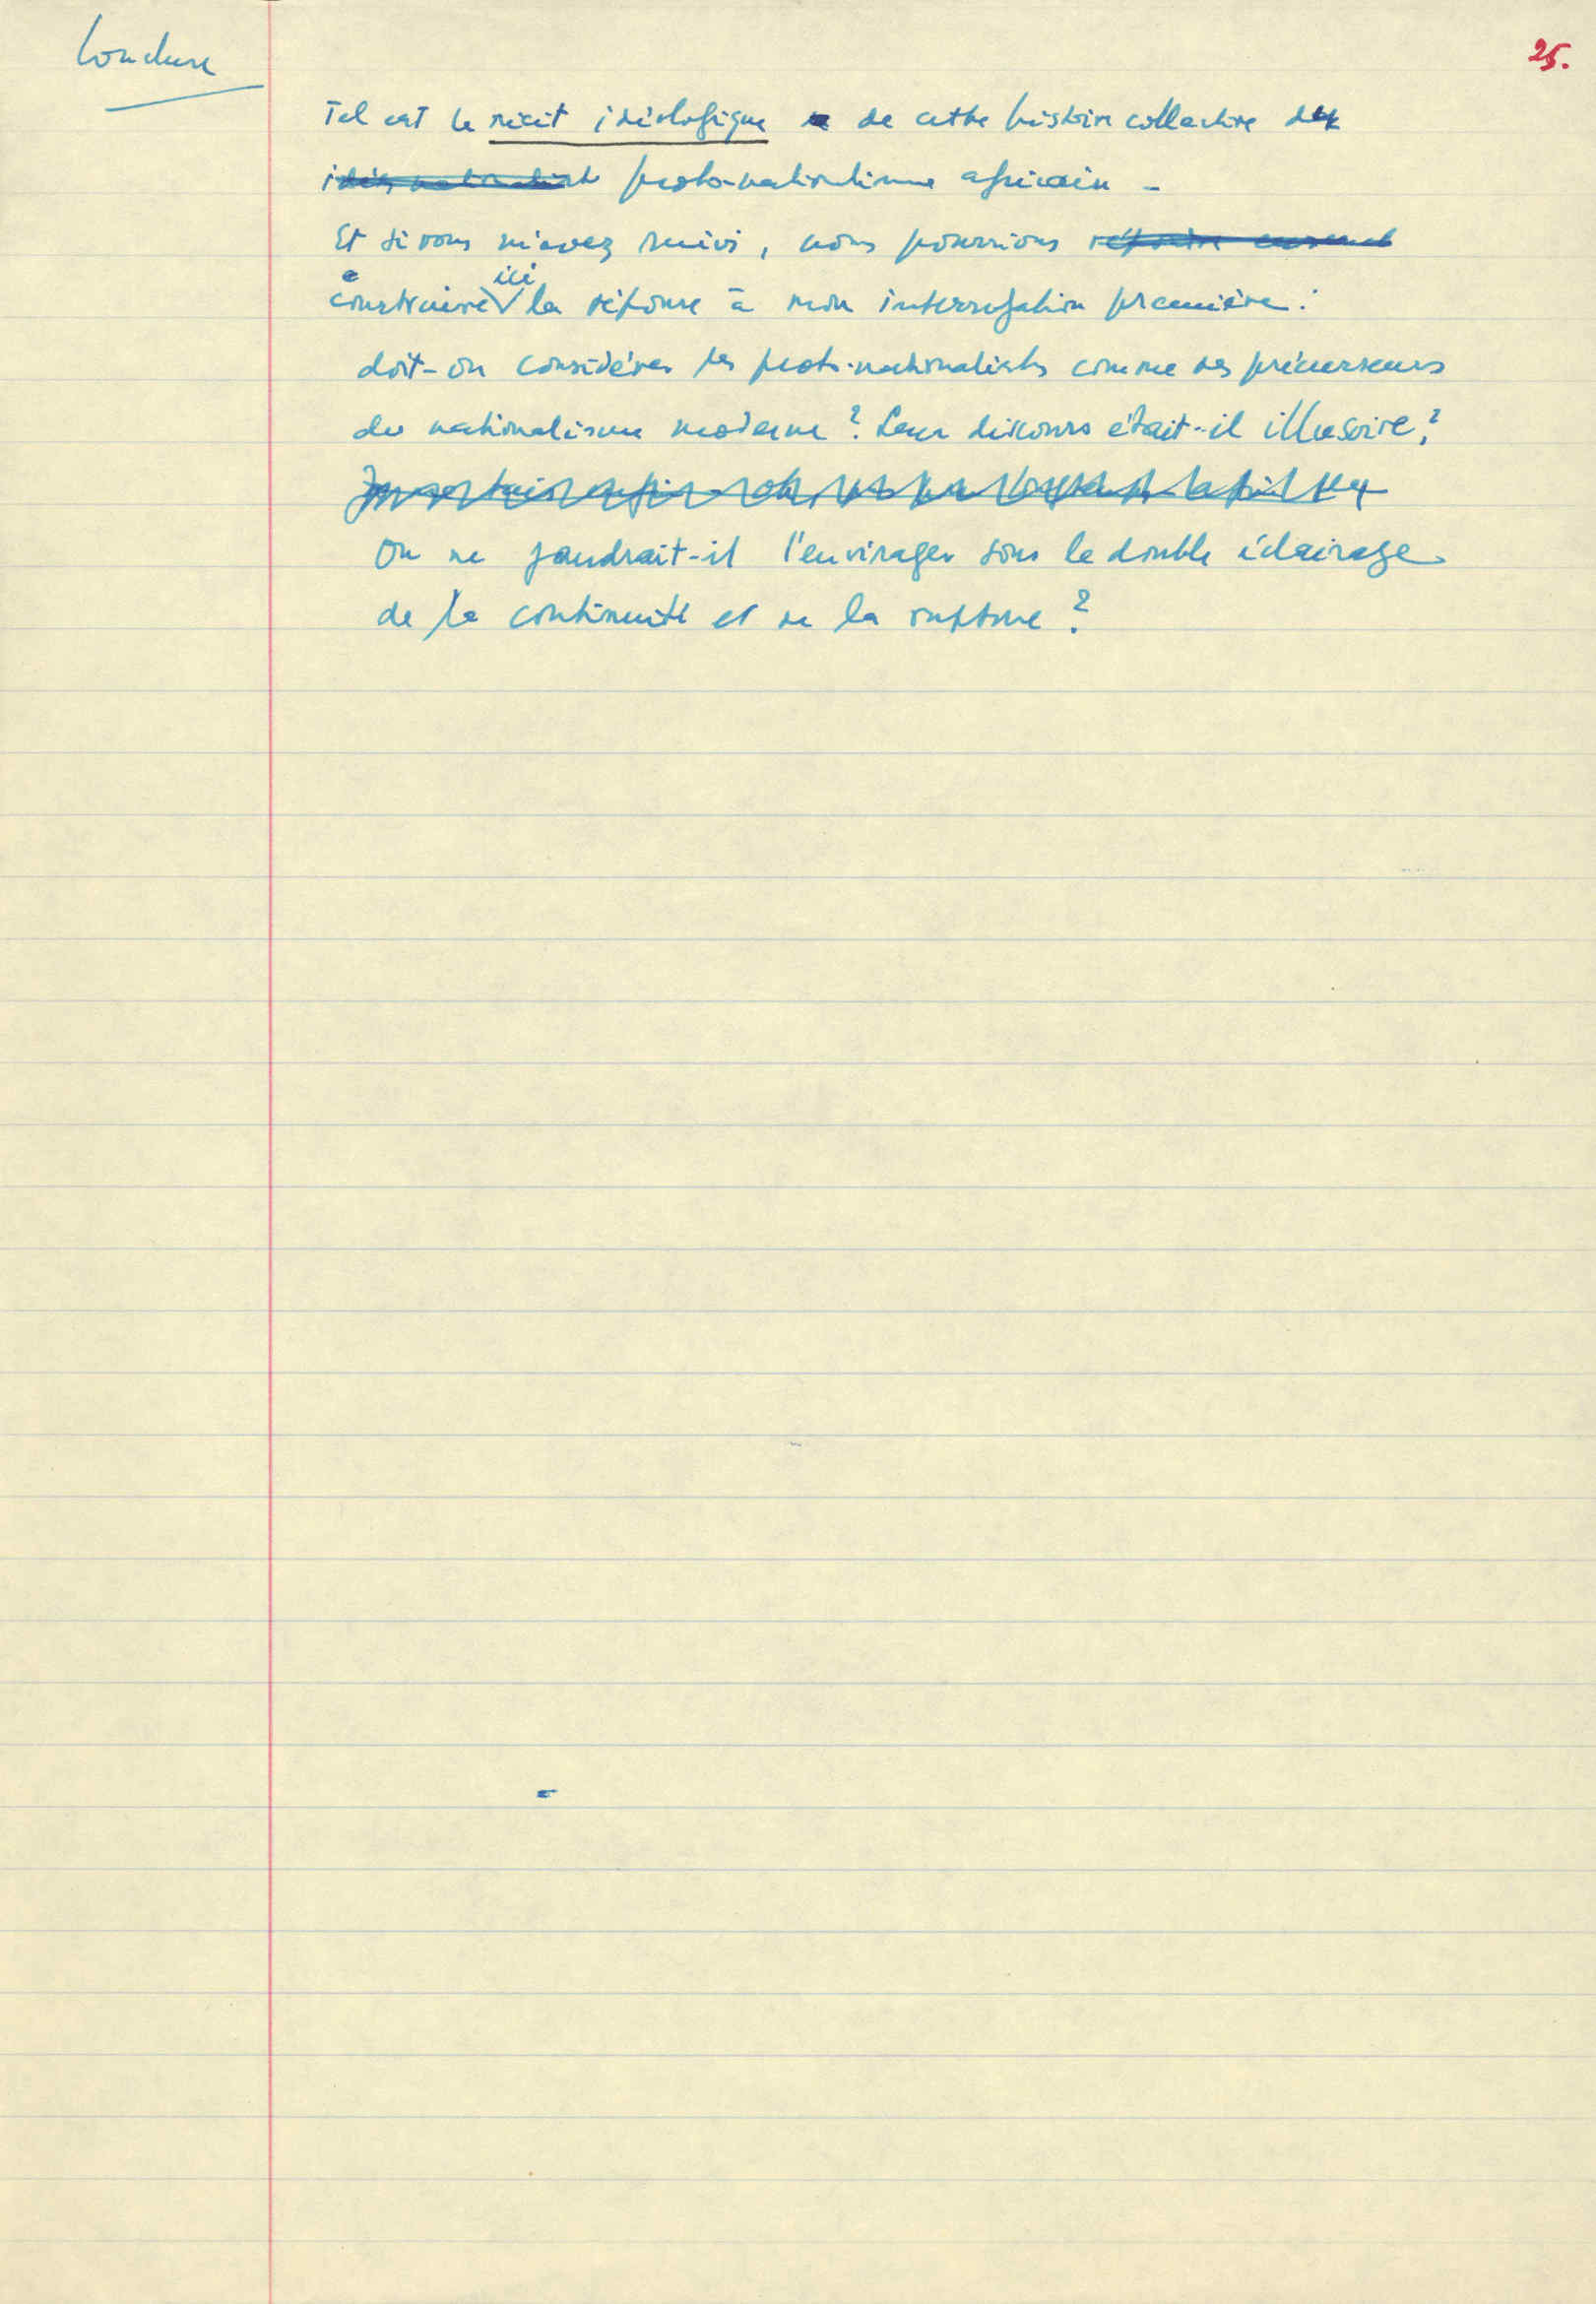 Conclure
25.
Tel est le récit idéologique de cette histoire collective du
proto-nationalisme africain -
Et si vous m'avez suivi, nous pourrions
construire ici la réponse à mon interrogation première :
doit-on considérer les proto-nationalistes comme des précurseurs
du nationalisme moderne ? Leur discours était-il illusoire ?
Ou ne faudrait-il l'envisager sous le double éclairage
de la continuité et de la rupture ?